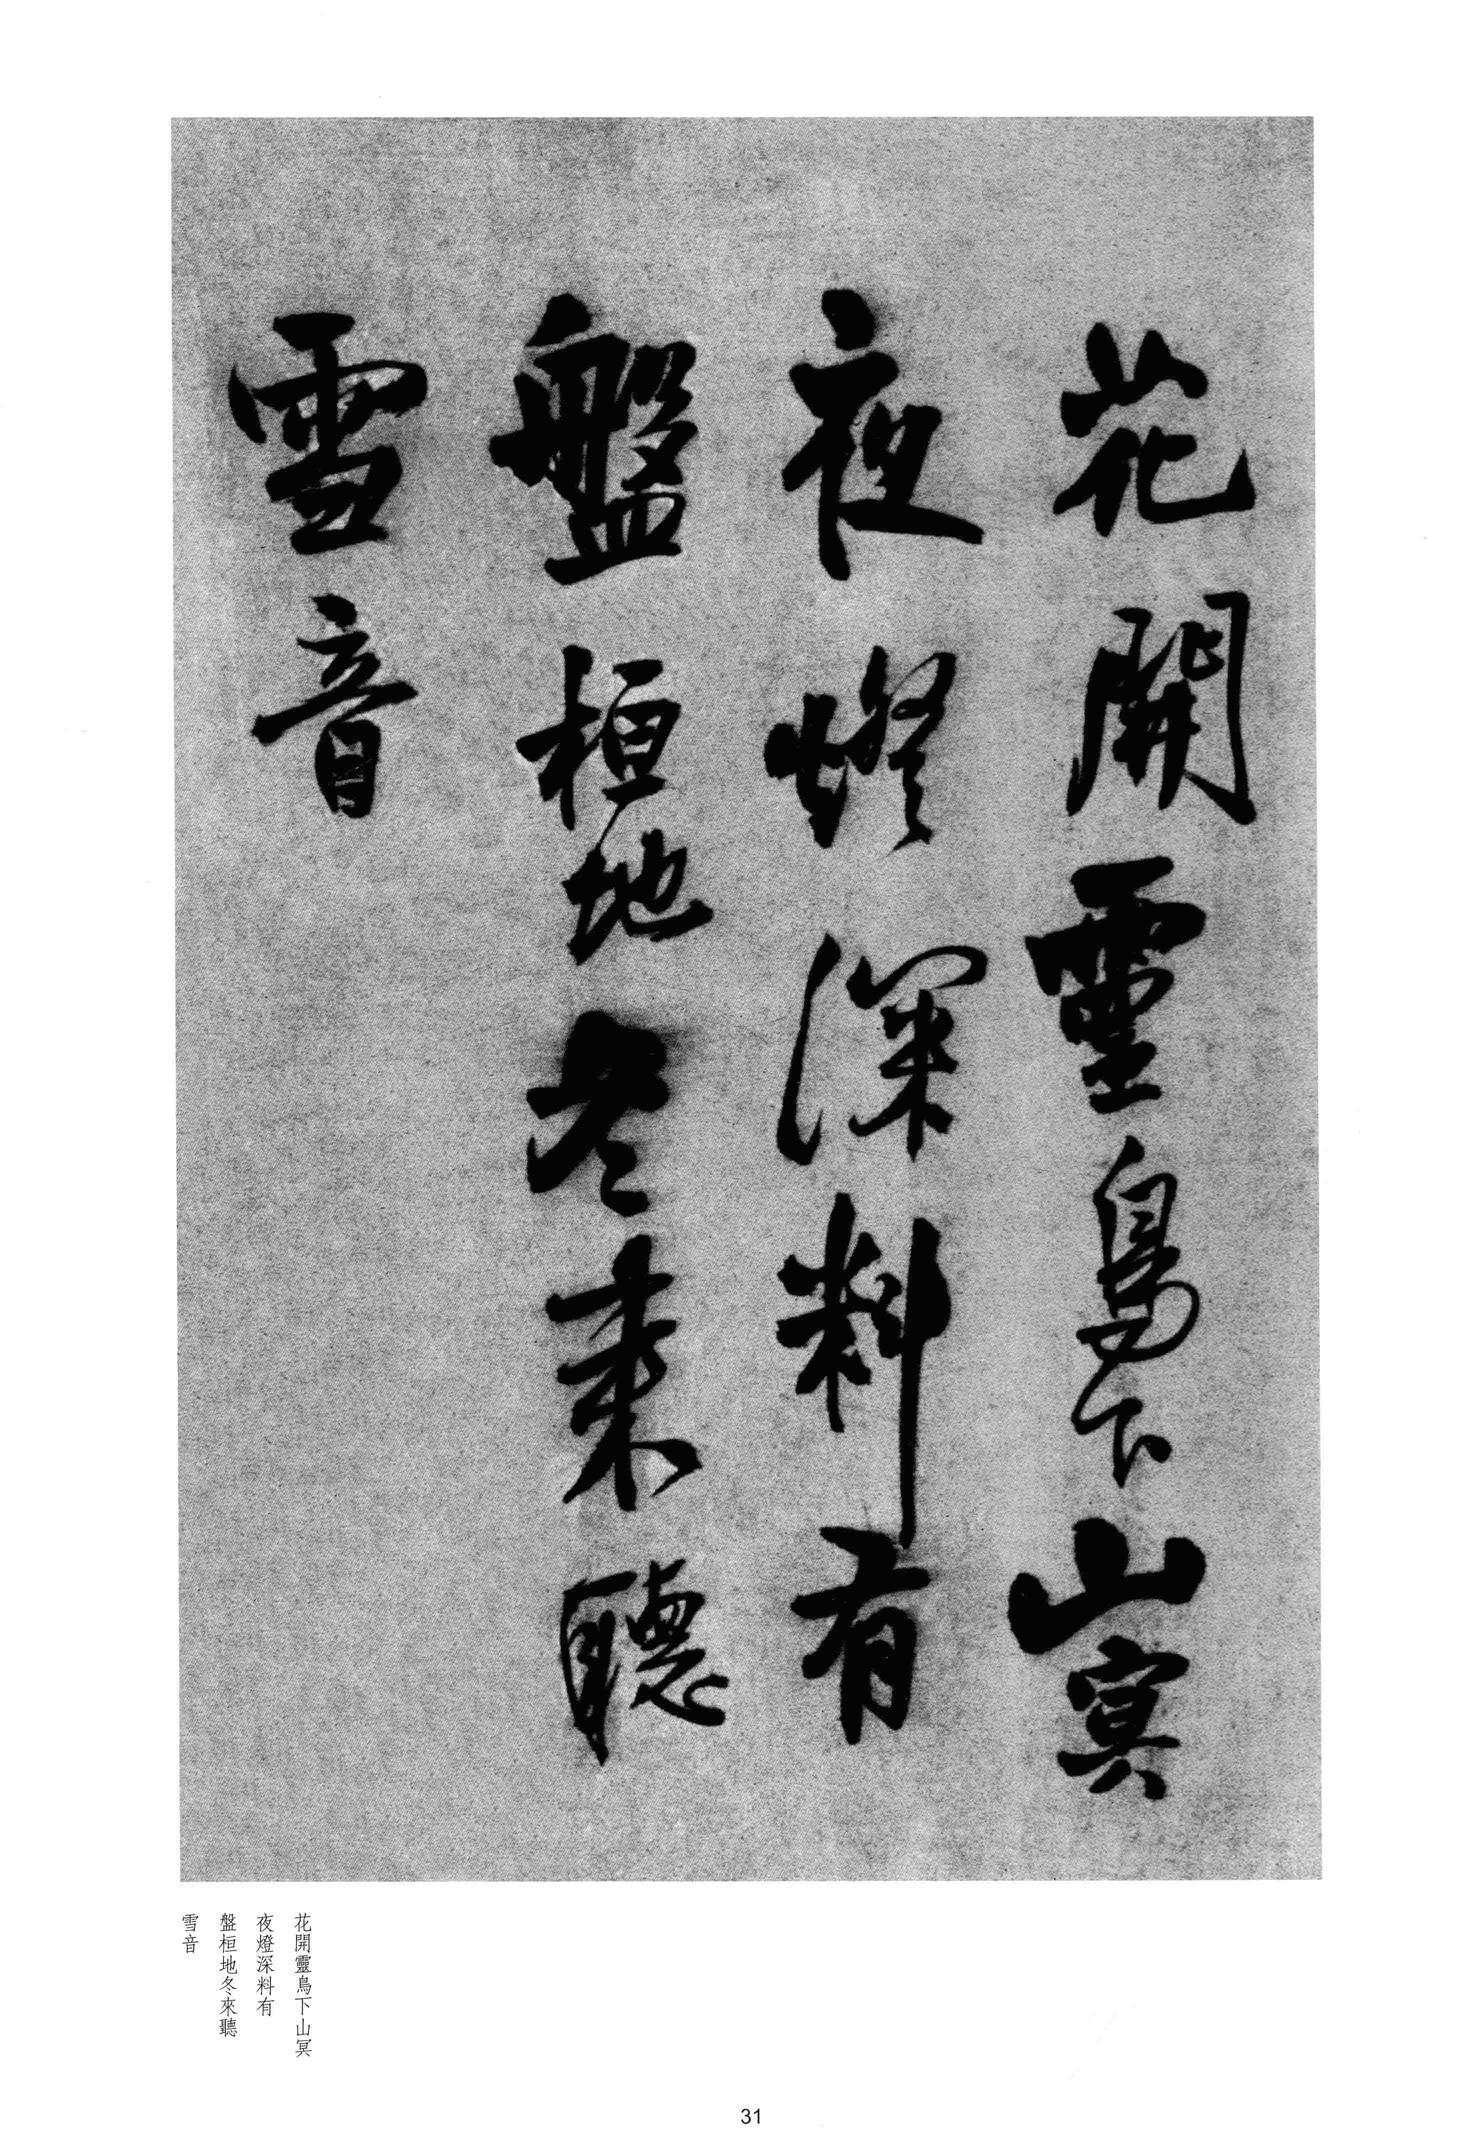 花開靈鳥下山冥
夜燈深料有
盤桓地冬來聽
雪音
花開靈鳥下山冥
夜燈深料有
盤桓地冬來聽
雪音
31